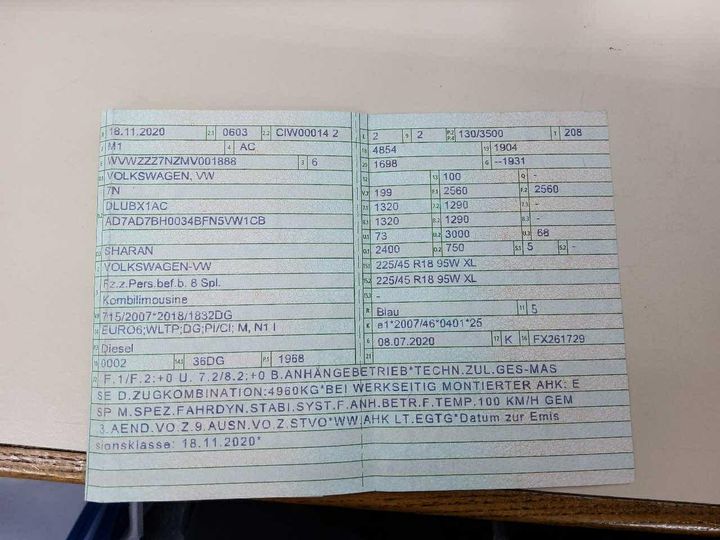 B 18.11.2020 2.1 0603 2.2 CIW00014 2
J M1 4 AC
E WVWZZZ7NZMV001888 3 6
D.1 VOLKSWAGEN, VW
7N
D.2 DLUBX1AC
AD7AD7BH0034BFN5VW1CB
D.3 SHARAN
2 VOLKSWAGEN-VW
5 Fz.z.Pers.bef.b. 8 Spl.
Kombilimousine
V.9 715/2007*2018/1832DG
14 EURO6;WLTP;DG;PI/CI; M, N1 I
P.3 Diesel
10 0002 14.1 36DG P.1 1968
L 2 9 2 P.2 P.4 130/3500 T 208
18 4854 19 1904
20 1698 G --1931
12 13 100 Q -
V.7 199 F.1 2560 F.2 2560
7.1 1320 7.2 1290 7.3 -
8.1 1320 8.2 1290 8.3 -
U.1 73 U.2 3000 U.3 68
O.1 2400 O.2 750 S.1 5 S.2 -
15.1 225/45 R18 95W XL
15.2 225/45 R18 95W XL
15.3 -
R Blau 11 5
K e1*2007/46*0401*25
6 08.07.2020 17 K 16 FX261729
21
22 F.1/F.2:+0 U. 7.2/8.2:+0 B.ANHÄNGEBETRIEB*TECHN.ZUL.GES-MAS
SE D.ZUGKOMBINATION:4960KG*BEI WERKSEITIG MONTIERTER AHK: E
SP M.SPEZ.FAHRDYN.STABI.SYST.F.ANH.BETR.F.TEMP.100 KM/H GEM
3.AEND.VO.Z.9.AUSN.VO.Z.STVO*WW.AHK LT.EGTG*Datum zur Emis
sionsklasse: 18.11.2020*